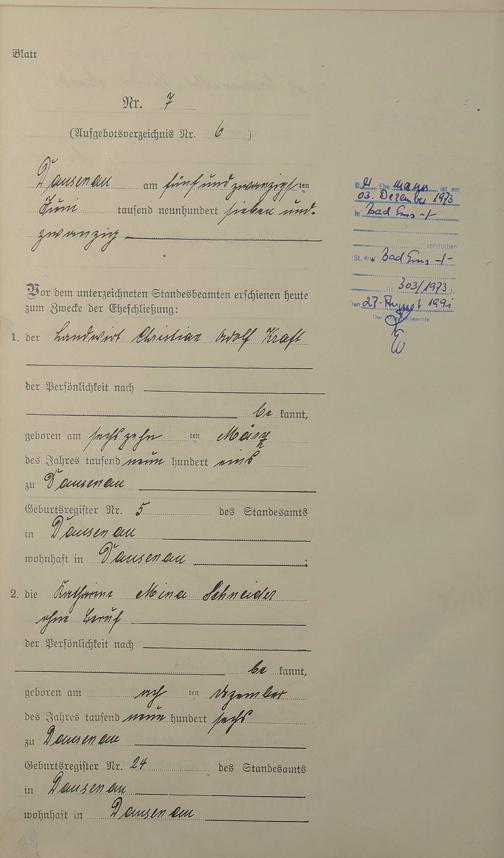 Blatt
Nr. 7
(Aufgebotsverzeichnis Nr. 6 )
Dausenau am fünf und zwanzigsten
Juni tausend neunhundert sieben und-
zwanzig
Vor dem unterzeichneten Standesbeamten erschienen heute
zum Zwecke der Eheschließung:
1. der Landwirt Christian Adolf Kraft
der Persönlichkeit nach
be kannt,
geboren am sechszehn ten März
des Jahres tausend neun hundert eins
zu Dausenau
Geburtsregister Nr. 5 des Standesamts
in Dausenau
wohnhaft in Dausenau ;
2. die Katharine Mina Schneider
ohne Beruf
der Persönlichkeit nach
be kannt,
geboren am ach ten Dezember
des Jahres tausend neun hundert sechs
zu Dausenau
Geburtsregister Nr. 24 des Standesamts
in Dausenau
wohnhaft in Dausenau
Ehemann ist am
03. Dezember 1973
in Bad Ems -/-
verstorben
(St. Amt Bad Ems -/-
Nr. 303/1973)
Den 27. August 1991